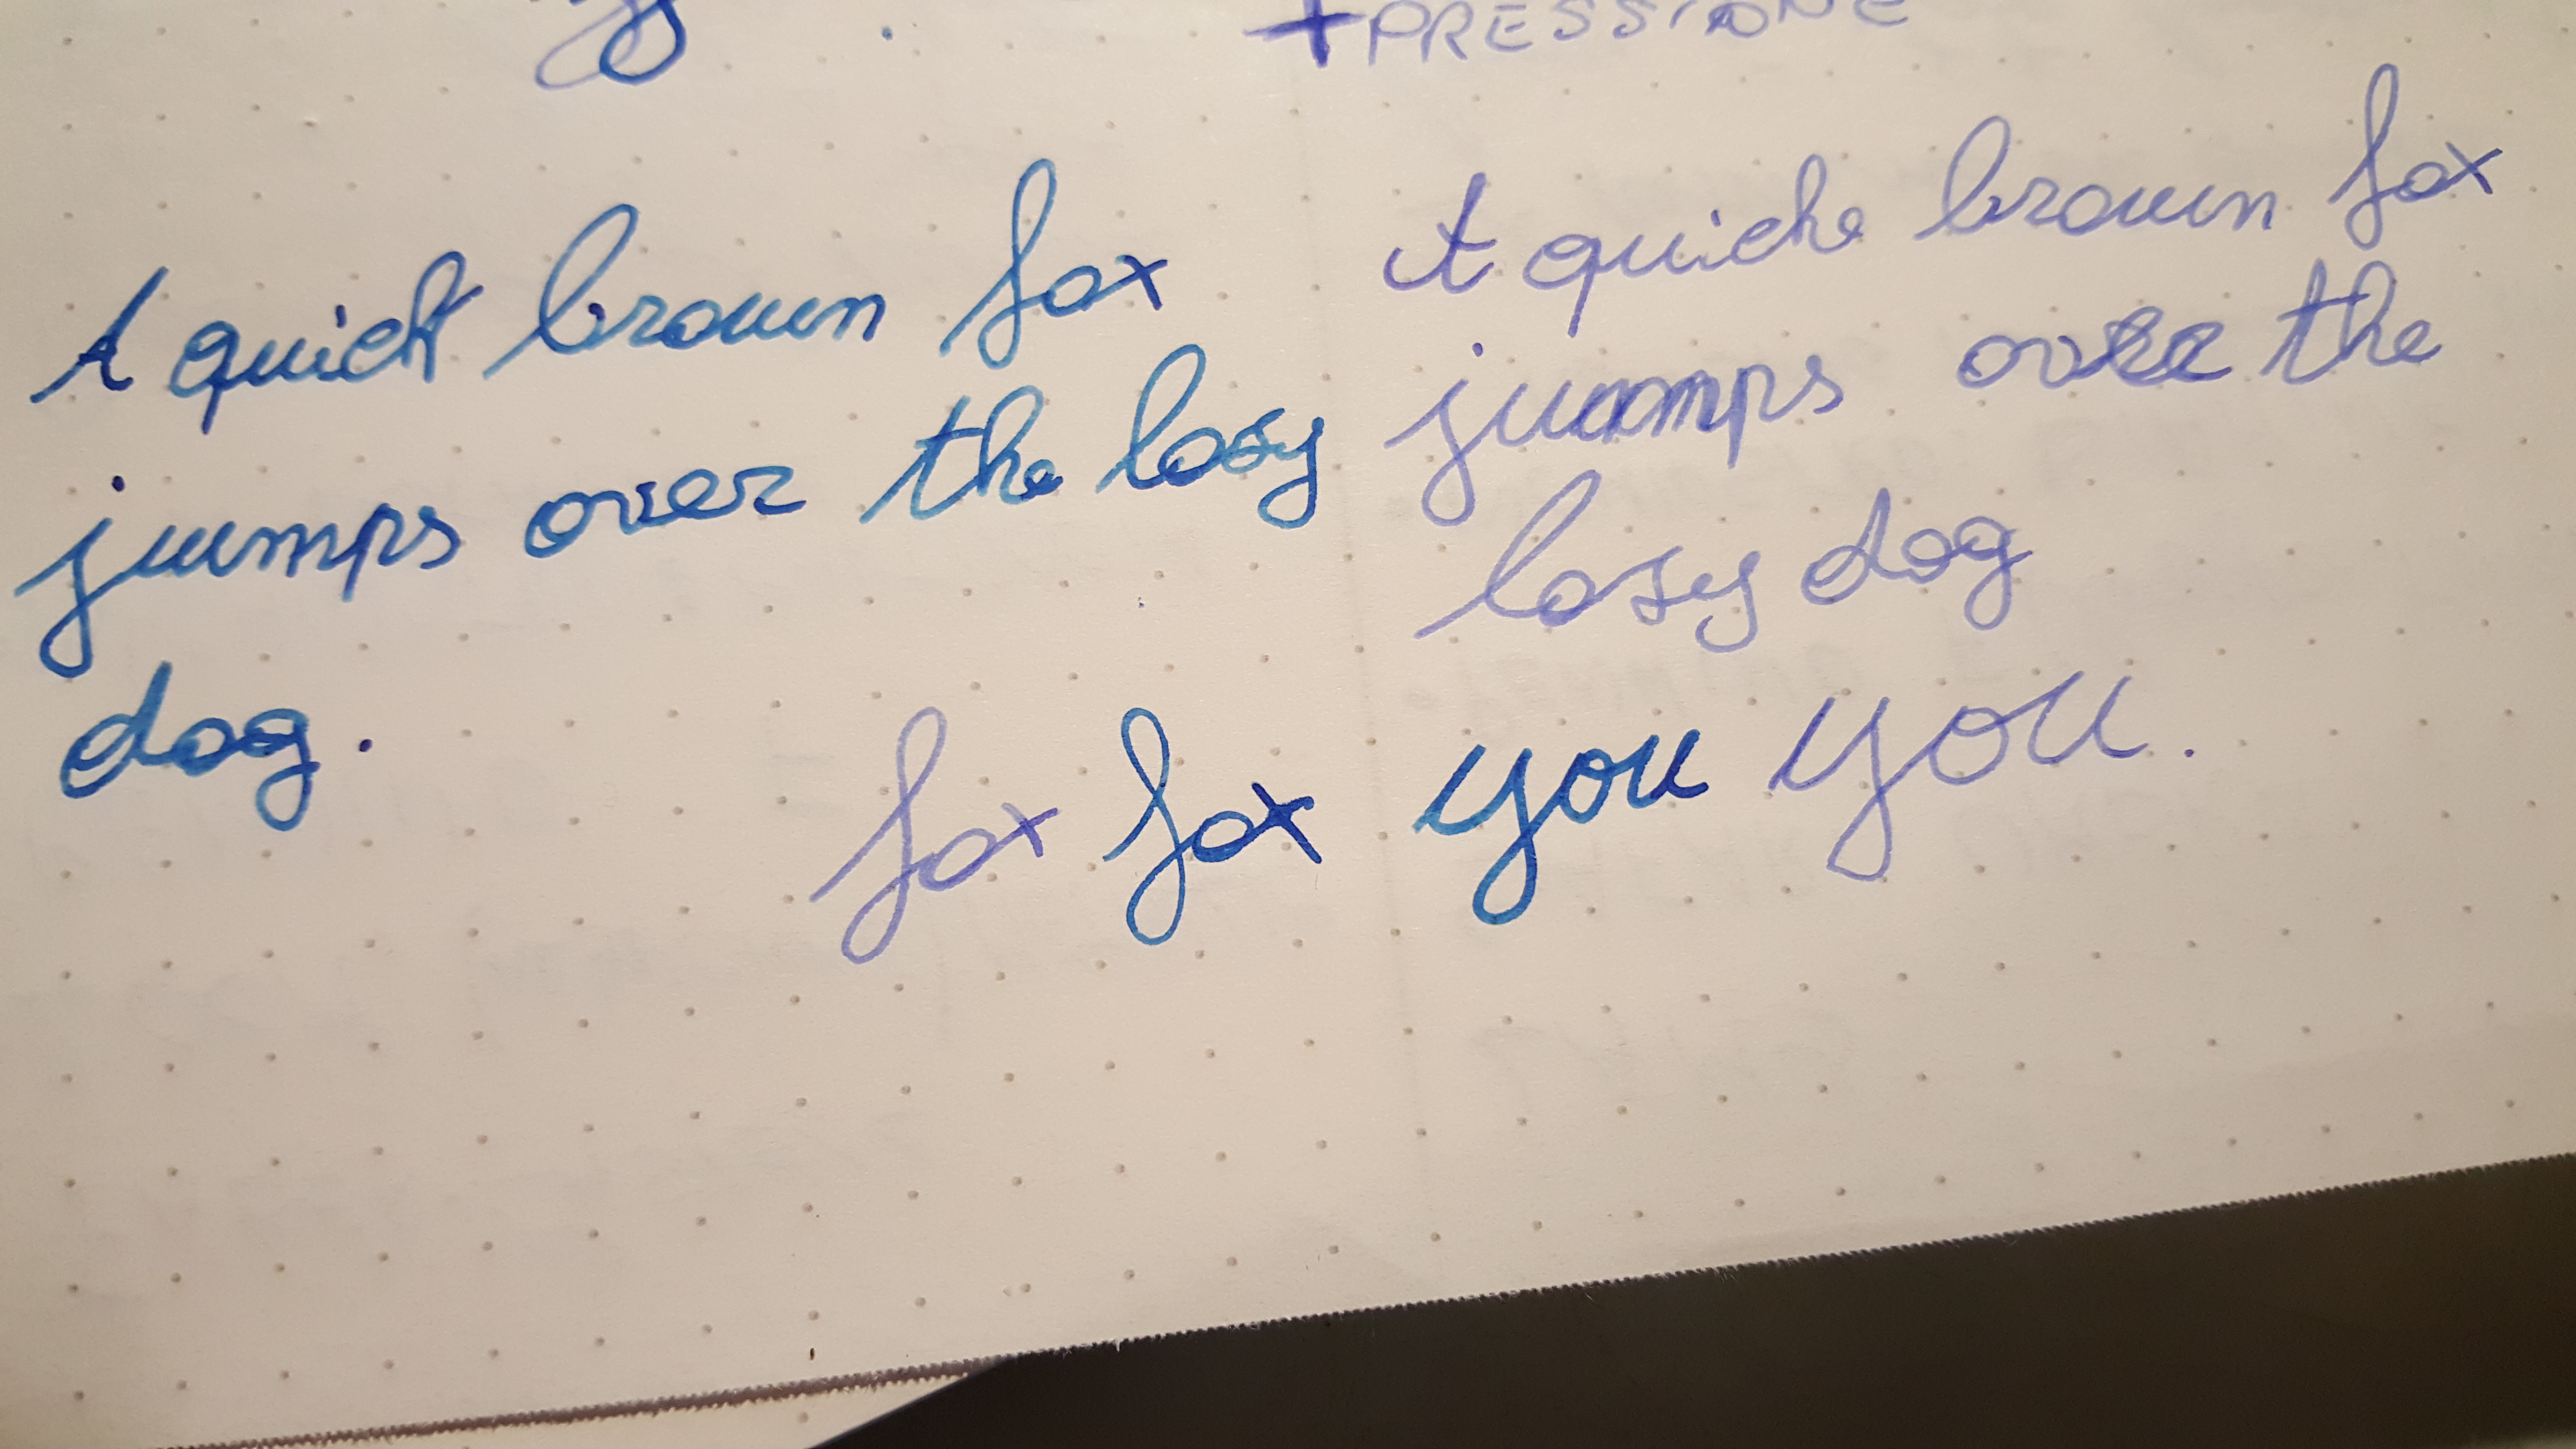 +PRESSIONE
A quick brown fox
jumps over the lasy
dog.
A quicke brown fox
jumps over the
lasy dog
fox fox you you.